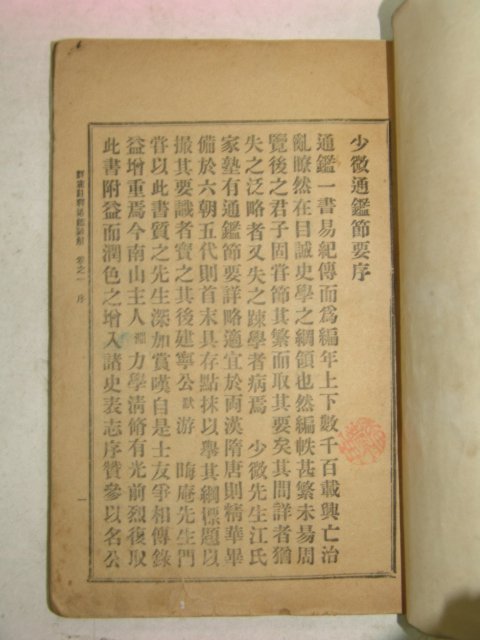 少微通鑑節要序
通鑑一書易紀傳而爲編年上下數千百載興亡治
亂瞭然在目誠史學之綱領也然編帙甚繁未易周
覽後之君子固嘗節其繁而取其要矣其間詳者猶
失之泛略者又失之疎學者病焉 少微先生江氏
家塾有通鑑節要詳略適宜於兩漢隋唐則精華畢
備於六朝五代則首末具存點抹以擧其綱標題以
撮其要識者寶之其後建寧公默游 晦庵先生門
嘗以此書質之先生深加賞嘆自是士友爭相傳錄
益增重焉今南山主人淵力學淸脩有光前烈復取
此書附益而潤色之增入諸史表志序贊參以名公
卷之一 序
一